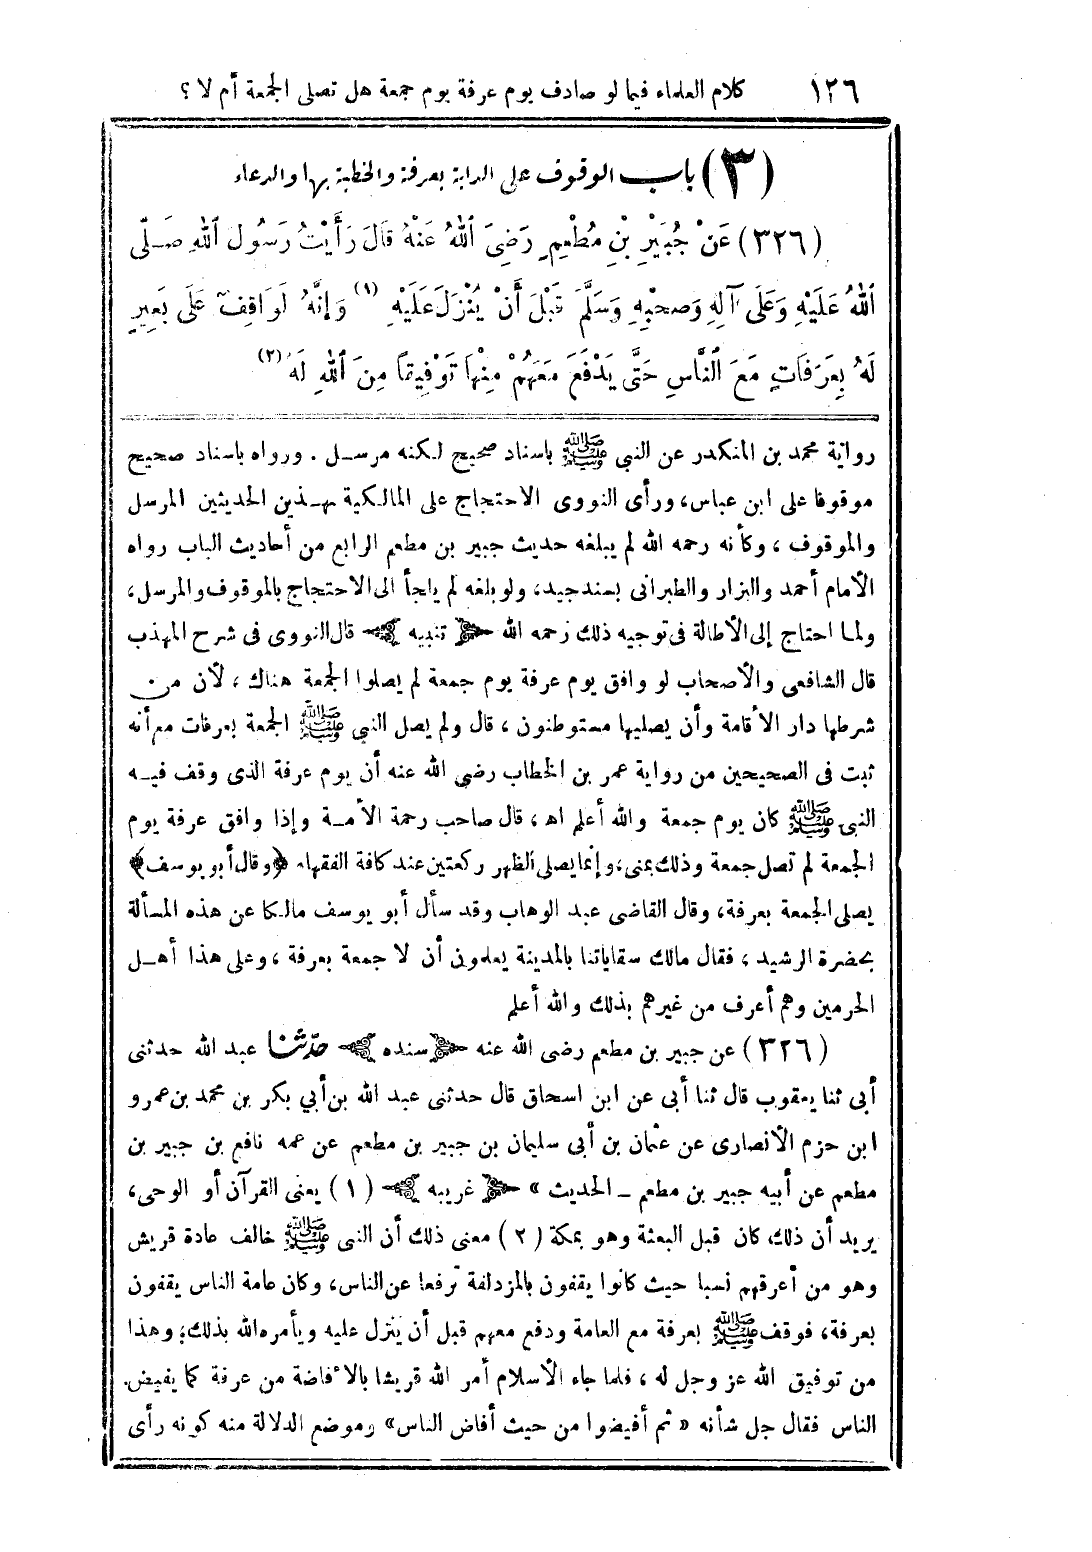 ١٢٦ كلام العلماء فيما لو صادف يوم عرفة يوم جمعة هل تصلى الجمعة أم لا ؟
(٣) باب الوقوف على الدابة بعرفة والخطبة بها والدعاء
(٣٢٦) عَنْ جُبَيْرِ بْنِ مُطْعِمٍ رَضِيَ اللهُ عَنْهُ قَالَ رَأَيْتُ رَسُولَ اللهِ صَلَّى
اللهُ عَلَيْهِ وَعَلَى آلِهِ وَصَحْبِهِ وَسَلَّمَ قَبْلَ أَنْ يُنْزَلَ عَلَيْهِ (١) وَإِنَّهُ لَوَاقِفٌ عَلَى بَعِيرٍ
لَهُ بِعَرَفَاتٍ مَعَ النَّاسِ حَتَّى يَدْفَعَ مَعَهُمْ مِنْهَا تَوْفِيقًا مِنَ اللهِ لَهُ (٢)
رواية محمد بن المنكدر عن النبي ﷺ باسناد صحيح لكنه مرسل . ورواه باسناد صحيح
موقوفا على ابن عباس، ورأى النووى الاحتجاج على المالكية بهذين الحديثين المرسل
والموقوف ، وكأنه رحمه الله لم يبلغه حديث جبير بن مطعم الرابع من أحاديث الباب رواه
الأمام أحمد والبزار والطبرانى بسند جيد، ولو بلغه لم يلجأ الى الاحتجاج بالموقوف والمرسل،
ولما احتاج إلى الأطالة فى توجيه ذلك رحمه الله ﴿ تنبيه ﴾ قال النووى فى شرح المهذب
قال الشافعى والأصحاب لو وافق يوم عرفة يوم جمعة لم يصلوا الجمعة هناك ، لأن من
شرطها دار الأقامة وأن يصليها مستوطنون ، قال ولم يصل النبى ﷺ الجمعة بعرفات مع أنه
ثبت فى الصحيحين من رواية عمر بن الخطاب رضي الله عنه أن يوم عرفة الذى وقف فيه
النبى ﷺ كان يوم جمعة والله أعلم اه ، قال صاحب رحمة الأمة وإذا وافق عرفة يوم
الجمعة لم تصل جمعة وذلك بمنى، وإنما يصلى الظهر ركعتين عند كافة الفقهاء ﴿وقال أبو يوسف﴾
يصلى الجمعة بعرفة، وقال القاضى عبد الوهاب وقد سأل أبو يوسف مالكا عن هذه المسألة
بحضرة الرشيد ، فقال مالك سقاياتنا بالمدينة يعلمون أن لا جمعة بعرفة ، وعلى هذا أهل
الحرمين وهم أعرف من غيرهم بذلك والله أعلم
(٣٢٦) عن جبير بن مطعم رضى الله عنه ﴿سنده﴾ حدّثنا عبد الله حدثنى
أبى ثنا يعقوب قال ثنا أبى عن ابن اسحاق قال حدثنى عبد الله بن أبي بكر بن محمد بن عمرو
ابن حزم الأنصارى عن عثمان بن أبى سليمان بن جبير بن مطعم عن عمه نافع بن جبير بن
مطعم عن أبيه جبير بن مطعم ـ الحديث » ﴿ غريبه ﴾ (١) يعنى القرآن أو الوحى،
يريد أن ذلك كان قبل البعثة وهو بمكة (٢) معنى ذلك أن النبى ﷺ خالف عادة قريش
وهو من أعرقهم نسبا حيث كانوا يقفون بالمزدلفة ترفعا عن الناس، وكان عامة الناس يقفون
بعرفة، فوقف ﷺ بعرفة مع العامة ودفع معهم قبل أن ينزل عليه ويأمره الله بذلك؛ وهذا
من توفيق الله عز وجل له ، فلما جاء الأسلام أمر الله قريشا بالأفاضة من عرفة كما يفيض
الناس فقال جل شأنه « ثم أفيضوا من حيث أفاض الناس» وموضع الدلالة منه كونه رأى